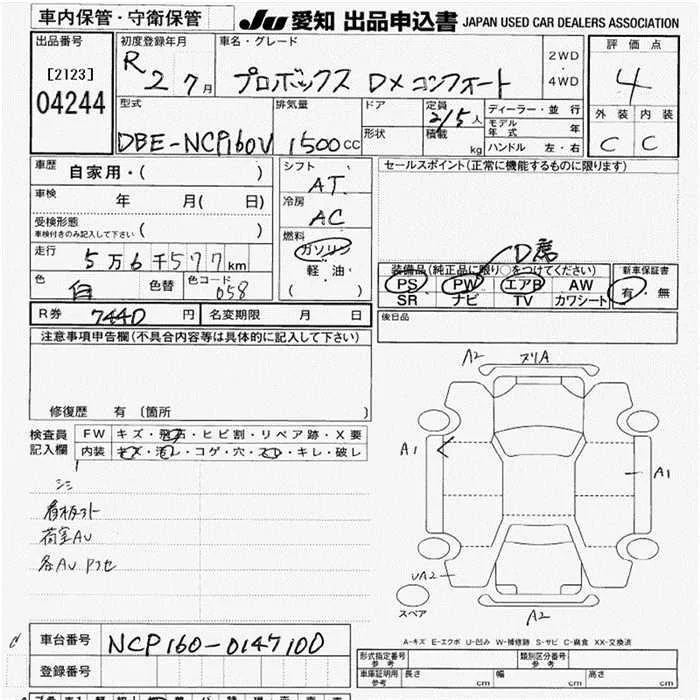 車内保管・守衛保管
JU 愛知 出品申込書 JAPAN USED CAR DEALERS ASSOCIATION
出品番号
[2123]
04244
初度登録年月
R 2 7月
車名・グレード
プロボックス DXコンフォート
2WD
・
4WD
評価点
4
外装 内装
C C
型式
DBE-NCP160V
排気量
1500cc
ドア
形状
定員
2/5人
積載
kg
ディーラー・並行
モデル年式 年
ハンドル 左・右
車歴 自家用・( )
車検 年 月( 日)
受検形態
車検付きのみ記入して下さい ( )
走行 5万6千577km
色 白 色替 色コード 058
シフト
AT
冷房
AC
燃料
ガソリン
軽油
( )
セールスポイント(正常に機能するものに限ります)
D席
装備品(純正品に限り○をつけてください)
PS PW エアB AW
SR ナビ TV カワシート
新車保証書
有・無
R券 7440円 名変期限 月 日
後日品
注意事項申告欄(不具合内容等は具体的に記入して下さい)
修復歴 有 〔箇所 〕
検査員記入欄
FW キズ・飛石・ヒビ割・リペア跡・X要
内装 キズ・汚レ・コゲ・穴・スレ・キレ・破レ
シミ
看板跡
荷室AU
各AU
A2 スリA
A1
A1
UA2
A2
スペア
A-キズ E-エクボ U-凹み W-補修跡 S-サビ C-腐食 XX-交換済
車台番号 NCP160-0147100
登録番号
形式指定番号 参考
類別区分番号 参考
車庫証明用 参考 長さ cm 幅 cm 高さ cm